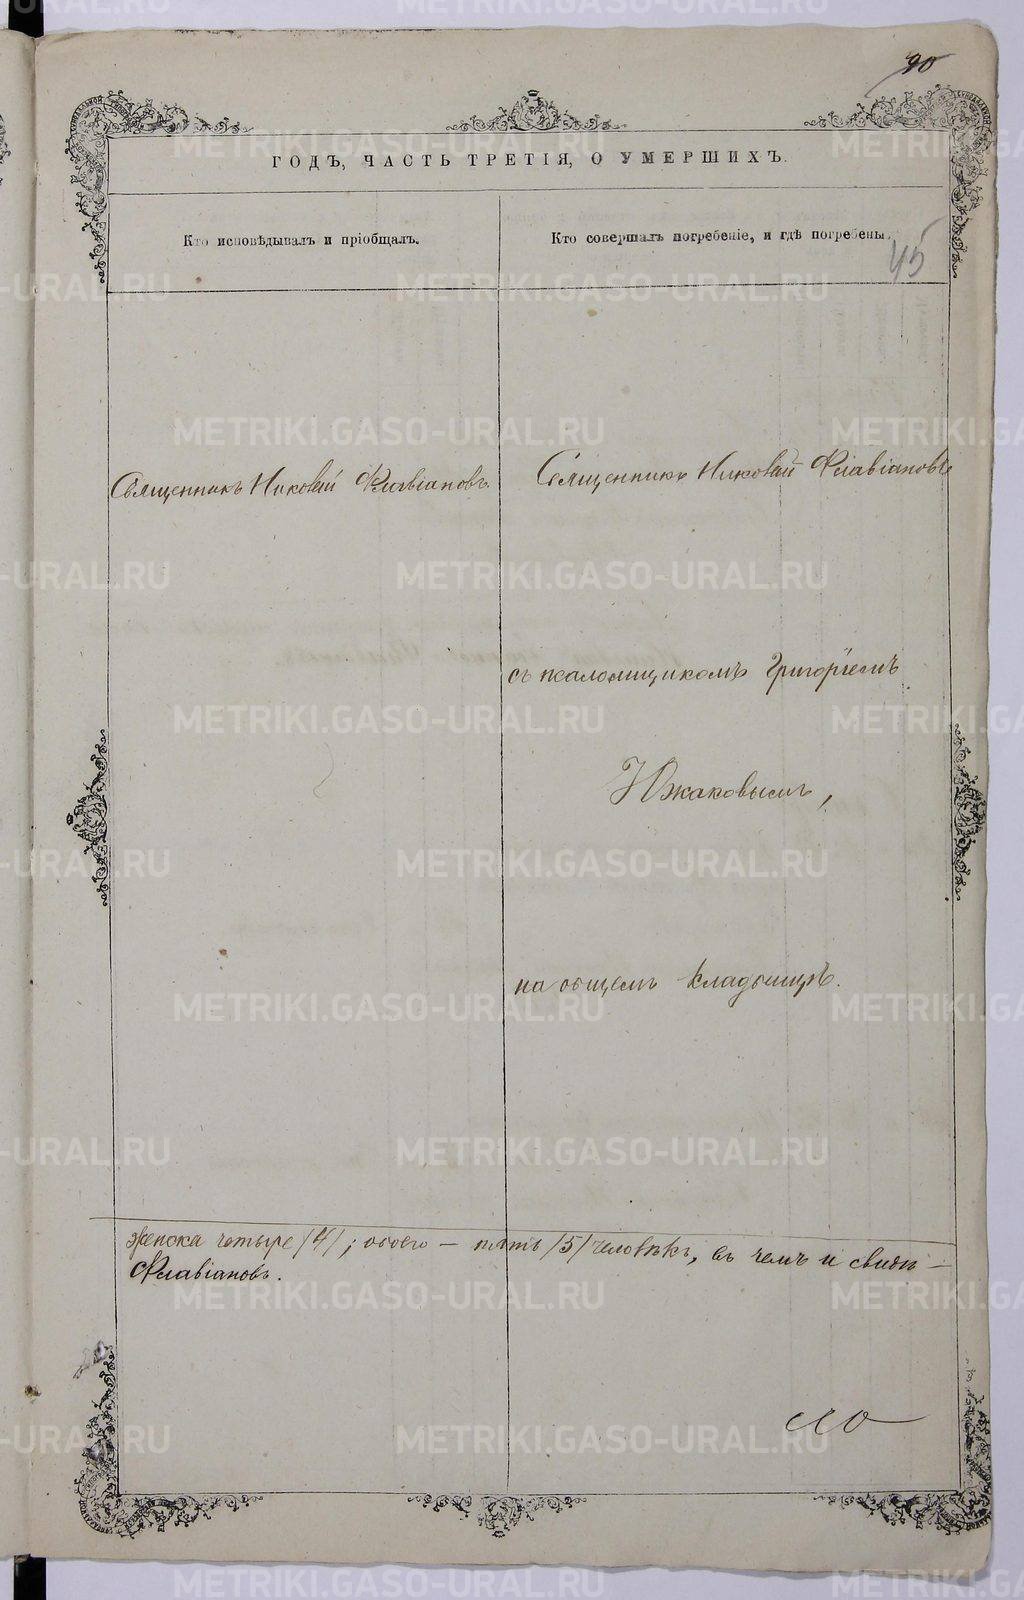 90
ГОДЪ, ЧАСТЬ ТРЕТІЯ, О УМЕРШИХЪ.
Кто исповѣдывалъ и пріобщалъ.
Кто совершалъ погребеніе, и гдѣ погребены.
45
Священникъ Николай Флавіановъ.
Священникъ Николай Флавіановъ
съ псаломщикомъ Григоріемъ
Южаковымъ,
на общемъ кладбищѣ.
женска четыре /4/; обоего — пять /5/ человѣкъ, въ чемъ и свидѣ-
Флавіановъ.
METRIKI.GASO-URAL.RU